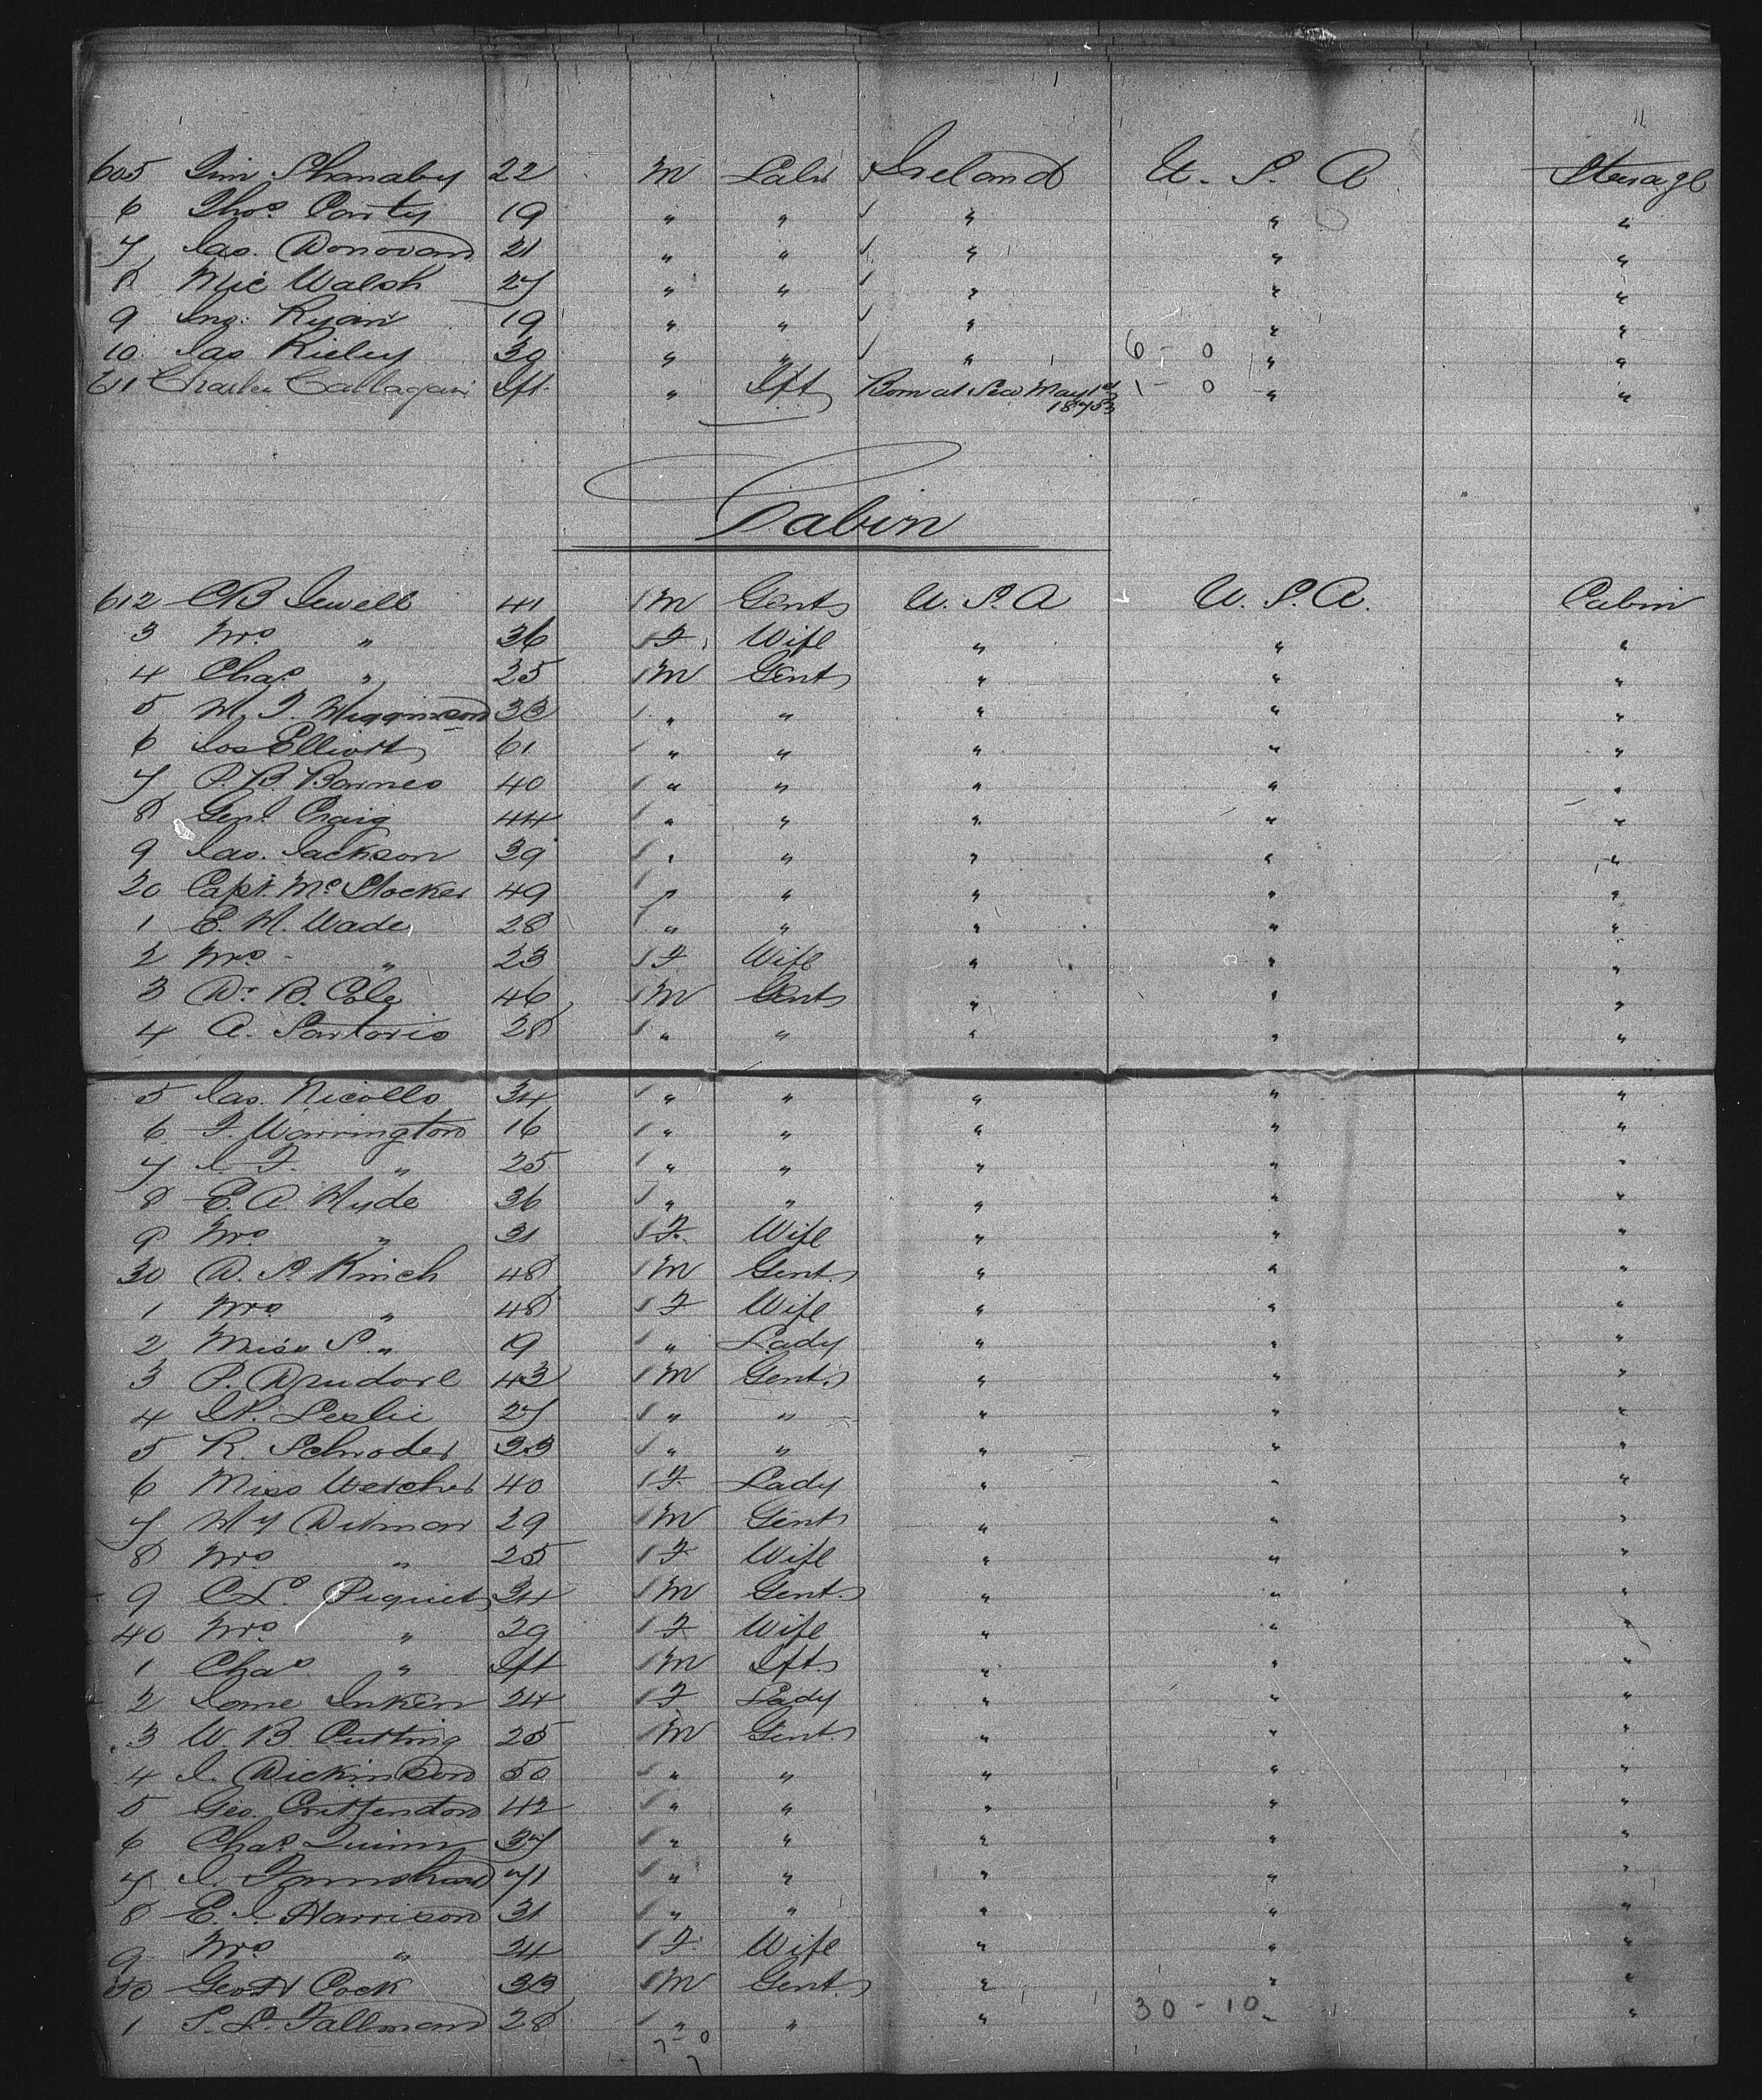 605 Jim Shanaby 22 M Labr Ireland U. S. A Steerage
6 Thos. Carty 19 " " " " "
7 Jas. Donovan 21 " " " " "
8 Mic Walsh 27 " " " " "
9 Jno. Ryan 19 " " " " "
10 Jas Rieley 30 " " " 6 - 0 " "
611 Charles Callagan Ift. " Ift Born at Sea May 1st 1873 1 - 0 " "
Cabin
612 CB Jewell 41 M Gent U. S. A U. S. A. Cabin
3 Mrs " 36 F Wife " " "
4 Chas " 25 M Gent " " "
5 H. I. Higginson 33 " " " " "
6 Jos Elliott 61 " " " " "
7 P. B. Barnes 40 " " " " "
8 Genl. Craig 44 " " " " "
9 Jas. Jackson 39 " " " " "
20 Capt. Mc Slocker 49 " " " " "
1 E. H. Wade 28 " " " " "
2 Mrs " 23 F Wife " " "
3 Dr B. Cole 46 M Gent " " "
4 A. Sartoris 28 " " " " "
5 Jas. Nicolls 34 " " " " "
6 F. Warrington 16 " " " " "
7 J. F. " 25 " " " " "
8 E. A. Hyde 36 " " " " "
9 Mrs " 31 F Wife " " "
30 D. S. Kinch 48 M Gent. " " "
1 Mrs " 48 F Wife " " "
2 Miss S. " 19 " Lady " " "
3 P. 43 M Gent. " " "
4 Leslie 27 " " " " "
5 R. Schroder 23 " " " " "
6 Miss 40 F Lady " " "
7 H Y Ditman 29 M Gent " " "
8 Mrs " 25 F Wife " " "
9 C L. Piquet 34 M Gent. " " "
40 Mrs " 29 F Wife " " "
1 Chas " Ift M Ift. " " "
2 Jane 24 F Lady " " "
3 W. B. Cutting 25 M Gent. " " "
4 J. Dickinson 50 " " " " "
5 Geo. Crittendon 42 " " " " "
6 Chas Quinn 37 " " " " "
7 J. 71 " " " " "
8 E. J. Harrison 31 " " " " "
9 Mrs " 24 F Wife " " "
50 Geo H Cock 33 M Gent. " " "
1 S. L. Fallman 28 " " " 30 - 10 " "
7 - 0